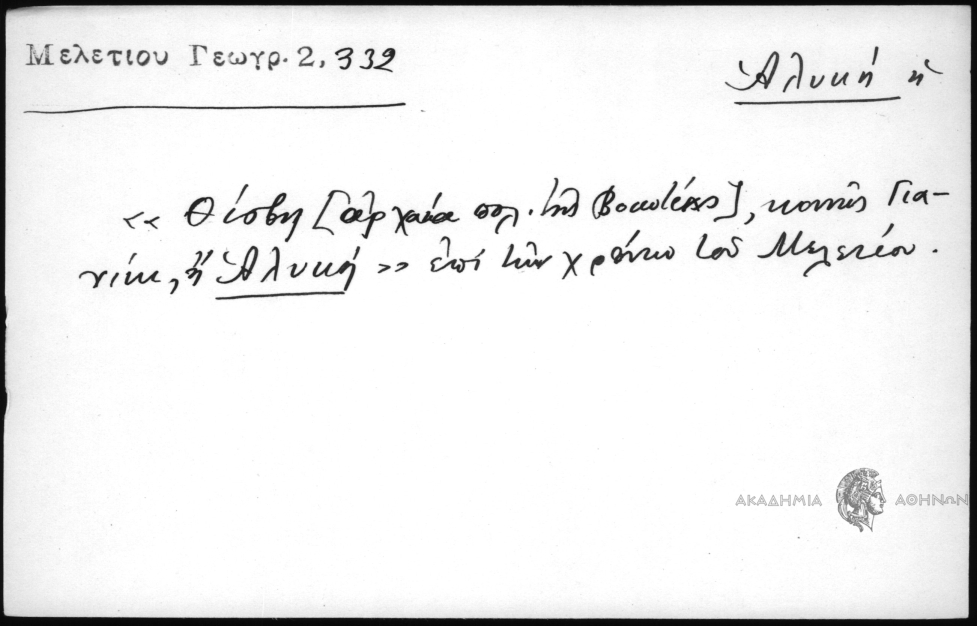 Μελετιου Γεωγρ. 2, 332
Ἁλυκή ἡ
«Θίσβη [ἀρχαία πολ. τῆς Βοιωτίας], κοινῶς Για-
νίκι, ἢ Ἁλυκή» ἐπί τῶν χρόνων τοῦ Μελετίου.
ΑΚΑΔΗΜΙΑ ΑΘΗΝΩΝ